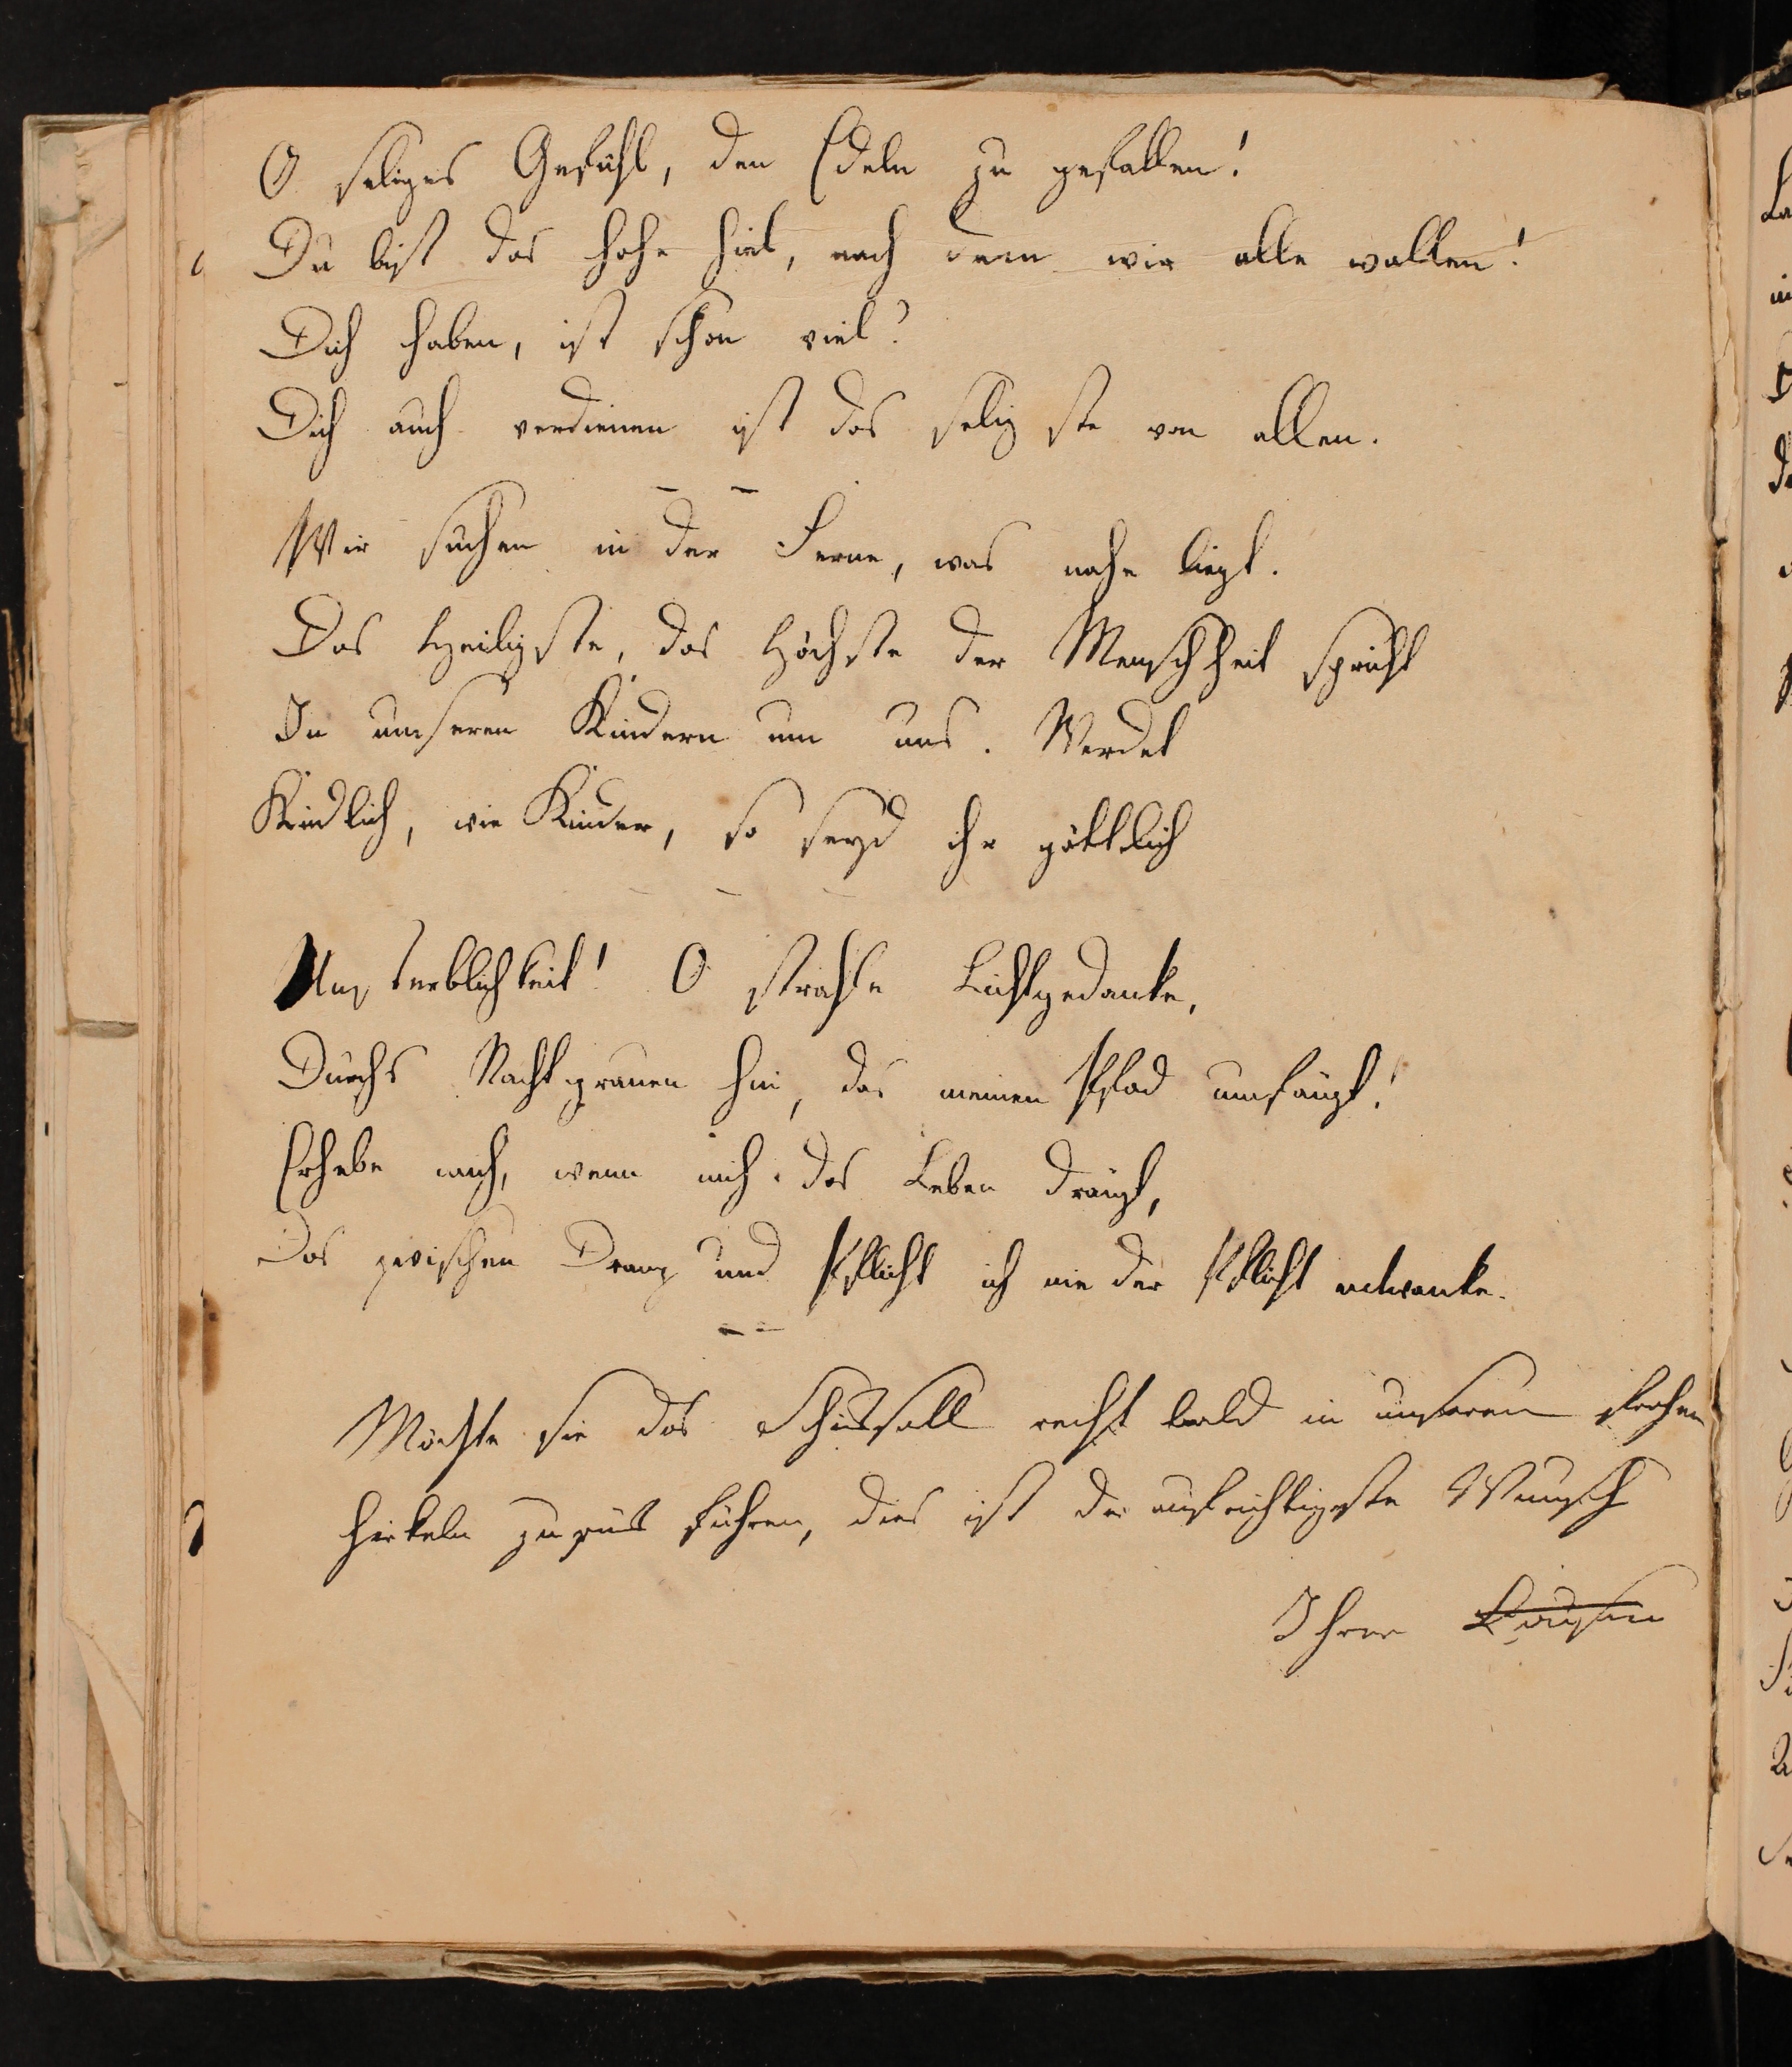 O seliges Gefühl, den Edeln zu gefallen!
Du bist das hohe Ziel, nach dem wir alle wallen!
Dich haben, ist schon viel!
Dich auch verdienen ist das selig ste von allen.
Wir suchen in der Ferne, was nahe liegt.
Das Heiligste, das Höchste der Menschheit spricht
In unseren Kindern um uns. Werdet
Kindlich, wie Kinder, so seyd ihr göttlich
Unsterblichkeit! O strahle Lichtgedanke,
Durchs Nachtgrauen hin, das meinen Pfad umfängt!
Erhebe mich, wenn mich das Leben drängt,
Das zwischen Drang und Pflicht ich nie der Pflicht entwanke.
Möchte sie das Schicksall recht bald in unseren frohen
Zirkeln zurük führen, dies ist der aufrichtigste Wunsch
Ihrer